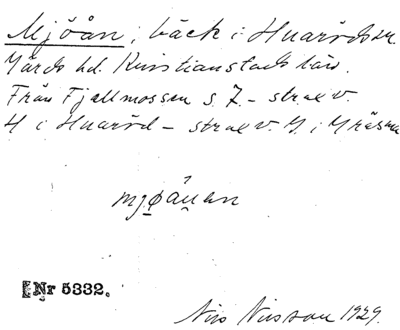 Mjöån, bäck i Huaröds sn.
Gärds hd. Kristianstads län.
Från Fjellmossen s. 7. – strax v.
H i Huaröd – strax v. G. i Gräsma
mjøåuan
[Nr 5332.
Nils Nilsson 1929.